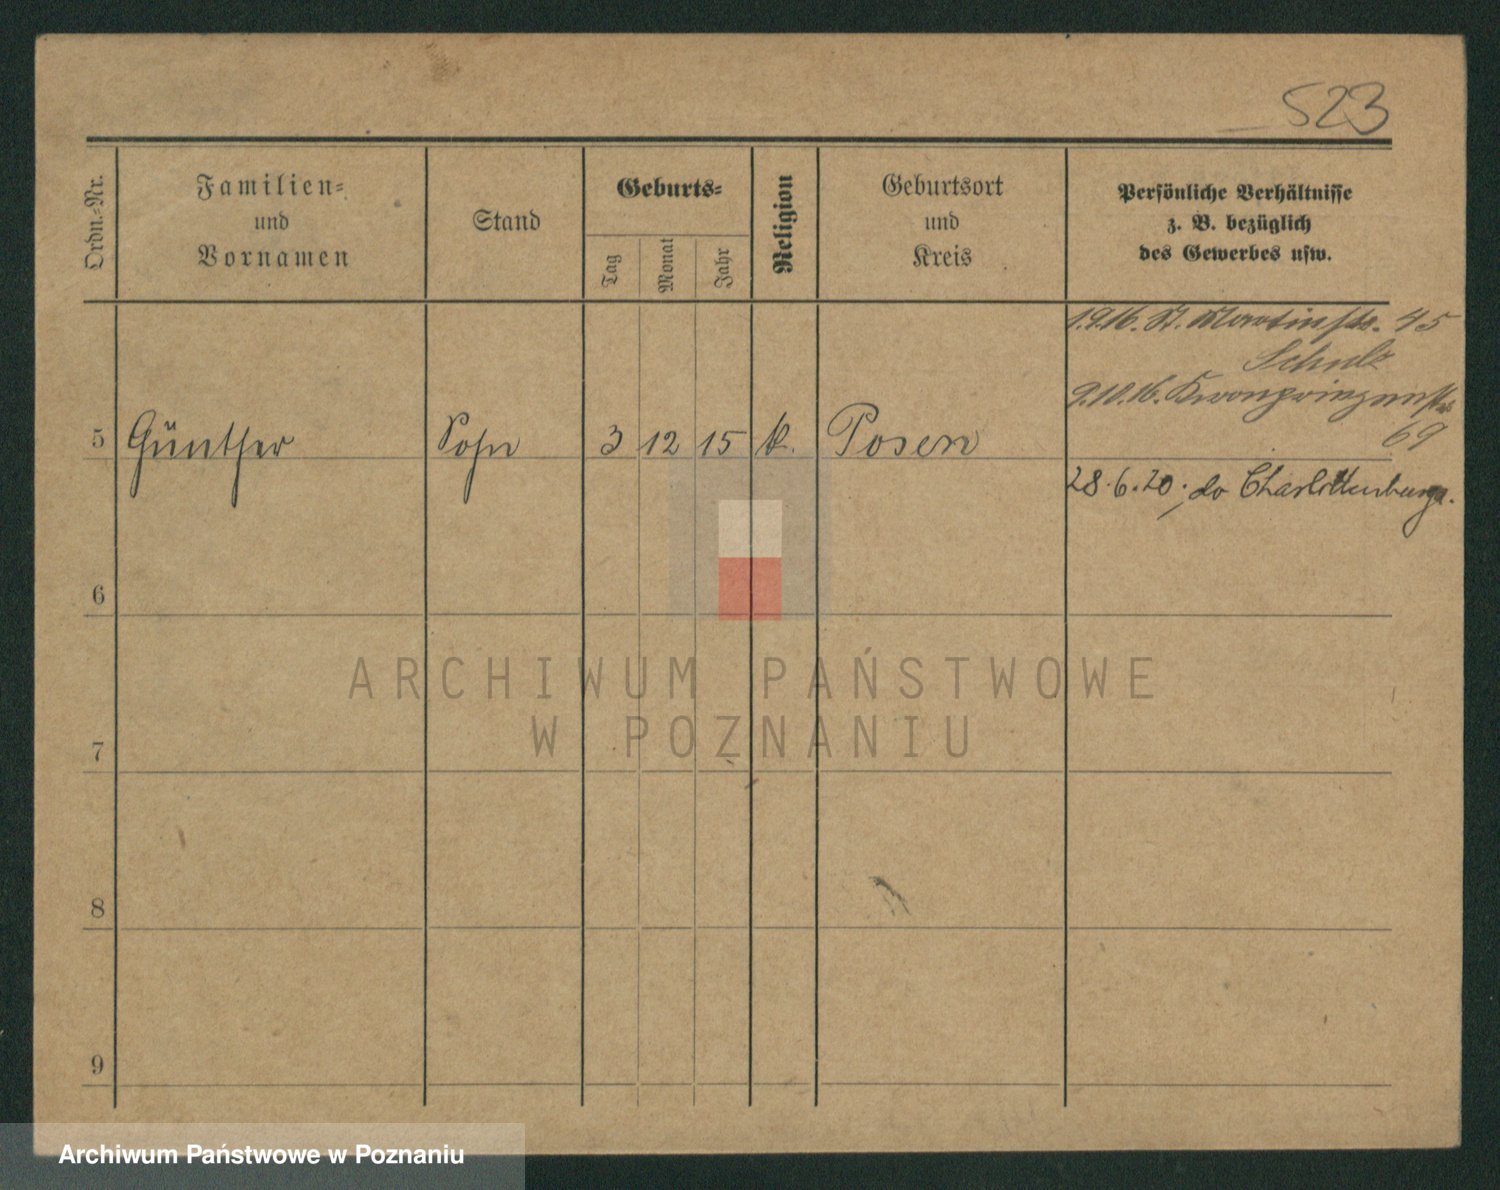 523
Ordn.-Nr.
Familien-
und
Vornamen
Stand
Geburts-
Tag
Monat
Jahr
Religion
Geburtsort
und
Kreis
Persönliche Verhältnisse
z. B. bezüglich
des Gewerbes usw.
1.9.16. St. Martinstr. 45
Schulz
9.10.16. Kronprinzenstr.
69
5 Günther Sohn 3 12 15 k. Posen
28.6.20. do Charlottenburga.
6
ARCHIWUM PAŃSTWOWE
W POZNANIU
7
8
9
Archiwum Państwowe w Poznaniu